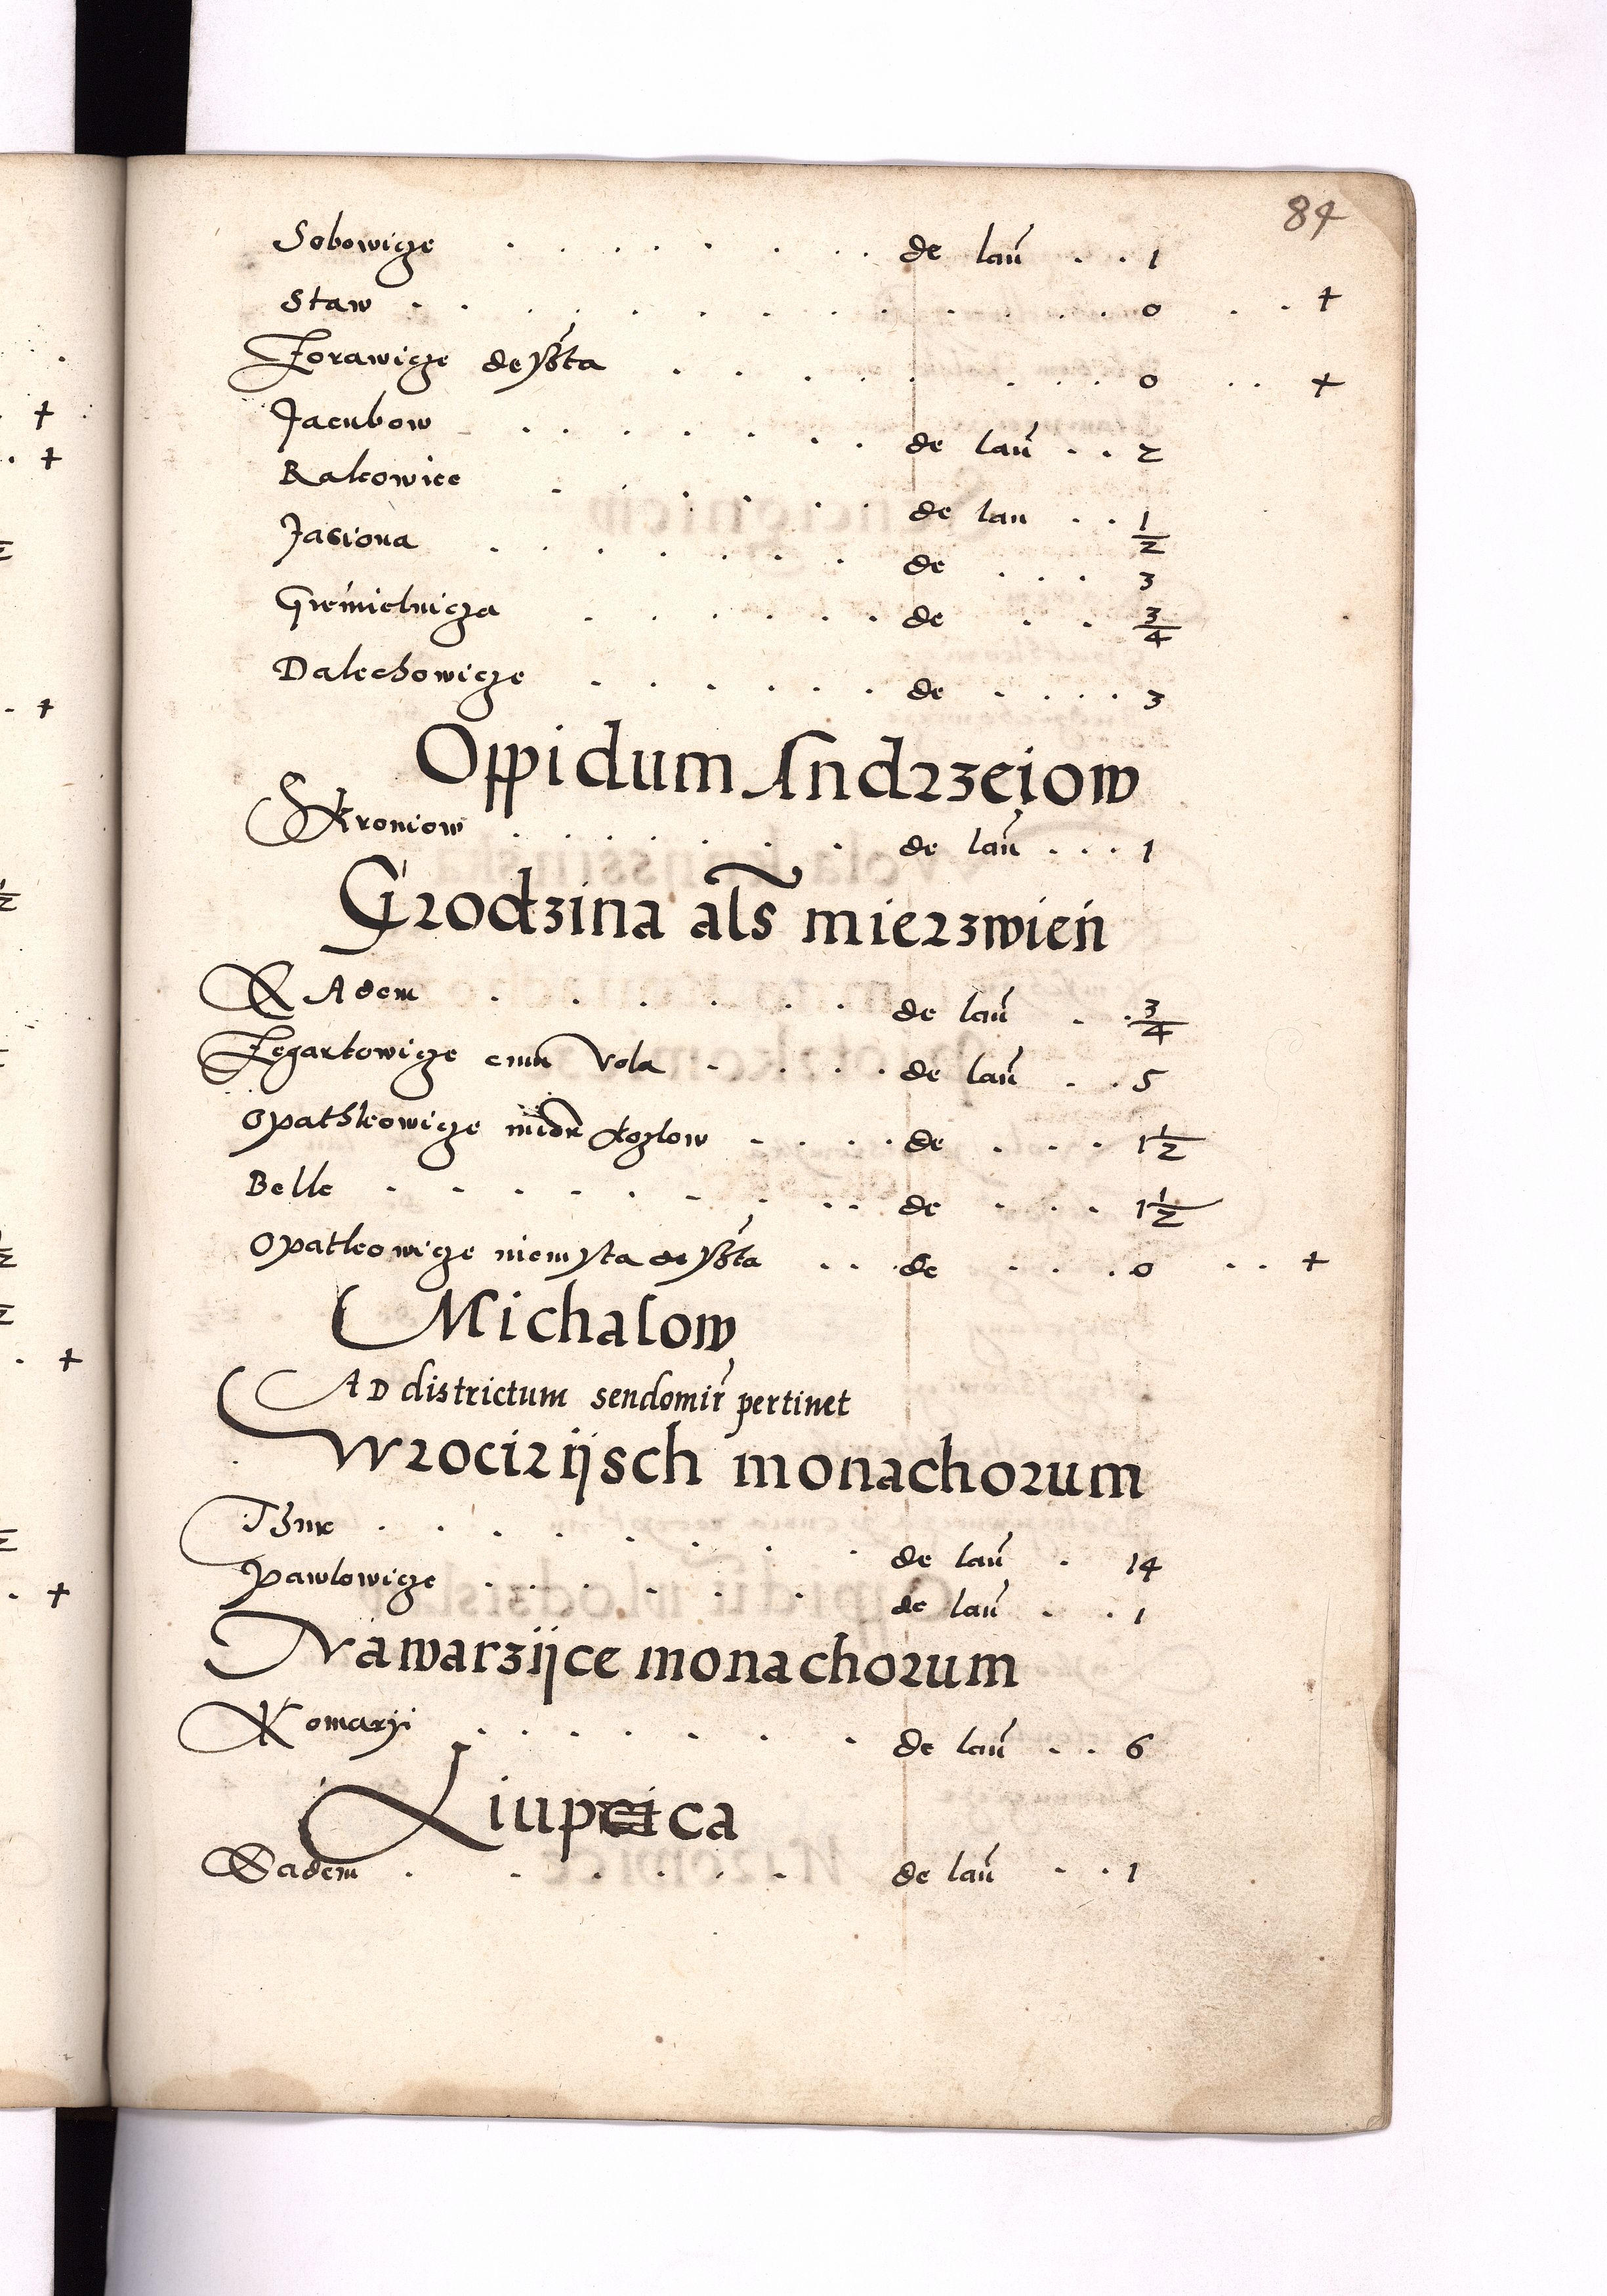 84
Sobowicze . . . . . . . de lan̄ . . 1
Staw . . . . . . . . . . . . 0 . . +
Zorawicze de . . . . . . . . 0 . . +
Jacubow . . . . . . . de lan̄ . . 2
Rakowice . . . . . . de lan . . 1/2
Jasiona . . . . . . . de . . . 3
Gremielnicza . . . . . . de . . 3/4
Dalechowicze . . . . . . de . . . . 3
Oppidum Andrzeiow
Skroniow . . . . . . . de lan̄ . . . 1
Grodzina als̄ mierzwień
IbAdem . . . . . . de lan̄ . . 3/4
Zegartowicze cum Vola . . . . de lan̄ . . 5
Opathkowicze Kozlow . . . . de . . . 1 1/2
Belle . . . . . . . . . de . . . 1 1/2
Opatkowicze . . . de . . . . 0 . . +
Michalow
AD districtum sendomir̄ pertinet
Wrocirijsch monachorum
Tzur . . . . . . . . de lan̄ . 14
Pawlowicze . . . . . . de lan̄ . . 1
Nawarzijce monachorum
Komarÿ . . . . . . . de lan̄ . . 6
Liupca
Ibadem . . . . . . de lan̄ . . 1